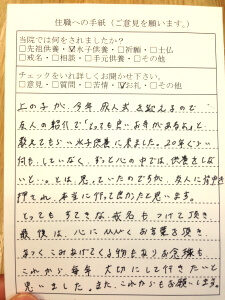 住職への手紙(ご意見を願います。)
当院では何をされましたか?
□先祖供養・☑水子供養・□祈願・□土仏
□戒名・□相談・□手元供養・□その他
チェックをいれ詳しくお聞かせ下さい。
□意見・□質問・□苦情・☑お礼・□その他
上の子が、今年成人式を迎えるので
友人の紹介で「とっても良いお寺があるよ」と
教えてもらい水子供養に来ました。20年ぐらい
何もしていなく、ずっと心の中では供養をしな
いと…。とは思っていたのですが、友人に背中を
押され、本当に行って良かったと思います。
とってもすてきな戒名もつけて頂き
最後は、心にひびくお言葉を頂き
あつくこみあげてくる物もありお念珠も
これから毎年大切にして行きたいと
思いました。また、これからもお願いします。